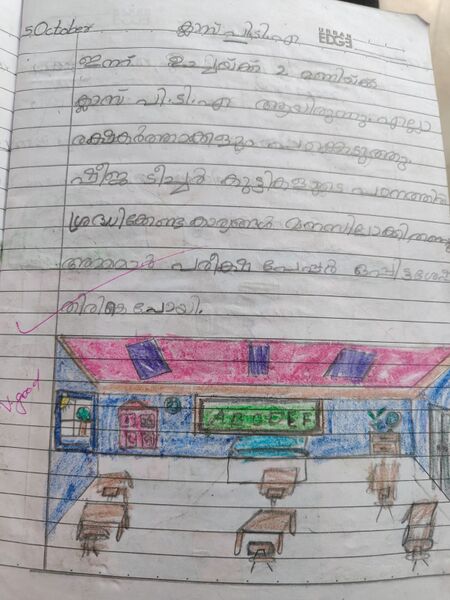 5 October ക്ലാസ് പി.ടി.എ
URBAN EDGE
ഇന്ന് ഉച്ചയ്ക്ക് 2 മണിയ്ക്ക്
ക്ലാസ് പി.ടി.എ ആയിരുന്നു. എല്ലാ
രക്ഷകർത്താക്കളും പങ്കെടുത്തു.
ഷീജ ടീച്ചർ കുട്ടികളുടെ പഠനത്തിൽ
ശ്രദ്ധിക്കേണ്ട കാര്യങ്ങൾ
അമ്മമാർ പരീക്ഷ പേപ്പർ ഒപ്പിട്ടശേഷം
തിരികെ പോയി.
V good
A B C D E F